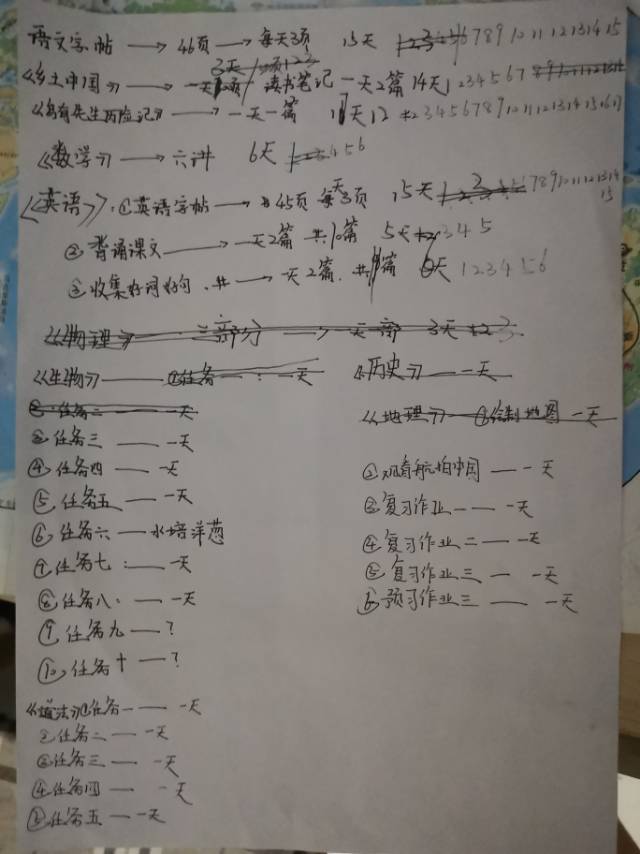 语文字帖 → 46页 → 每天3页 15天 1 2 3 4 5 6 7 8 9 10 11 12 13 14 15
3天
《乡土中国》 → 读书笔记 一天2篇 14天 1 2 3 4 5 6 7 8 9 10 11 12 13 14
历险记》 → 一天一篇 17天 1 2 3 4 5 6 7 8 9 10 11 12 13 14 15 16 17
《数学》 → 六讲 6天 1 2 3 4 5 6
《英语》. ①英语字帖 → 45页 每天3页 15天 1 2 3 4 5 6 7 8 9 10 11 12 13 14 15
②背诵课文 —— 一天2篇 共10篇 5天 1 2 3 4 5
③收集好词好句. 共 → 一天2篇. 共 篇 6天 1 2 3 4 5 6
《物理》 三部分 → 一天一部 3天 1 2 3
《生物》 —— ①任务一 : 一天
②任务二 —— 一天
③任务三 —— 一天
④任务四 —— 一天
⑤任务五 —— 一天
⑥任务六 —— 水培洋葱
⑦任务七 : —— 一天
⑧任务八. —— 一天
⑨任务九 —— ?
⑩任务十 —— ?
《道法》①任务一 —— 一天
②任务二 —— 一天
③任务三 —— 一天
④任务四 —— 一天
⑤任务五 —— 一天
《历史》 —— 一天
《地理》 —— ①绘制地图 一天
②观看航拍中国 —— 一天
③复习作业一 —— 一天
④复习作业二 —— 一天
⑤复习作业三 —— 一天
⑥预习作业三 —— 一天